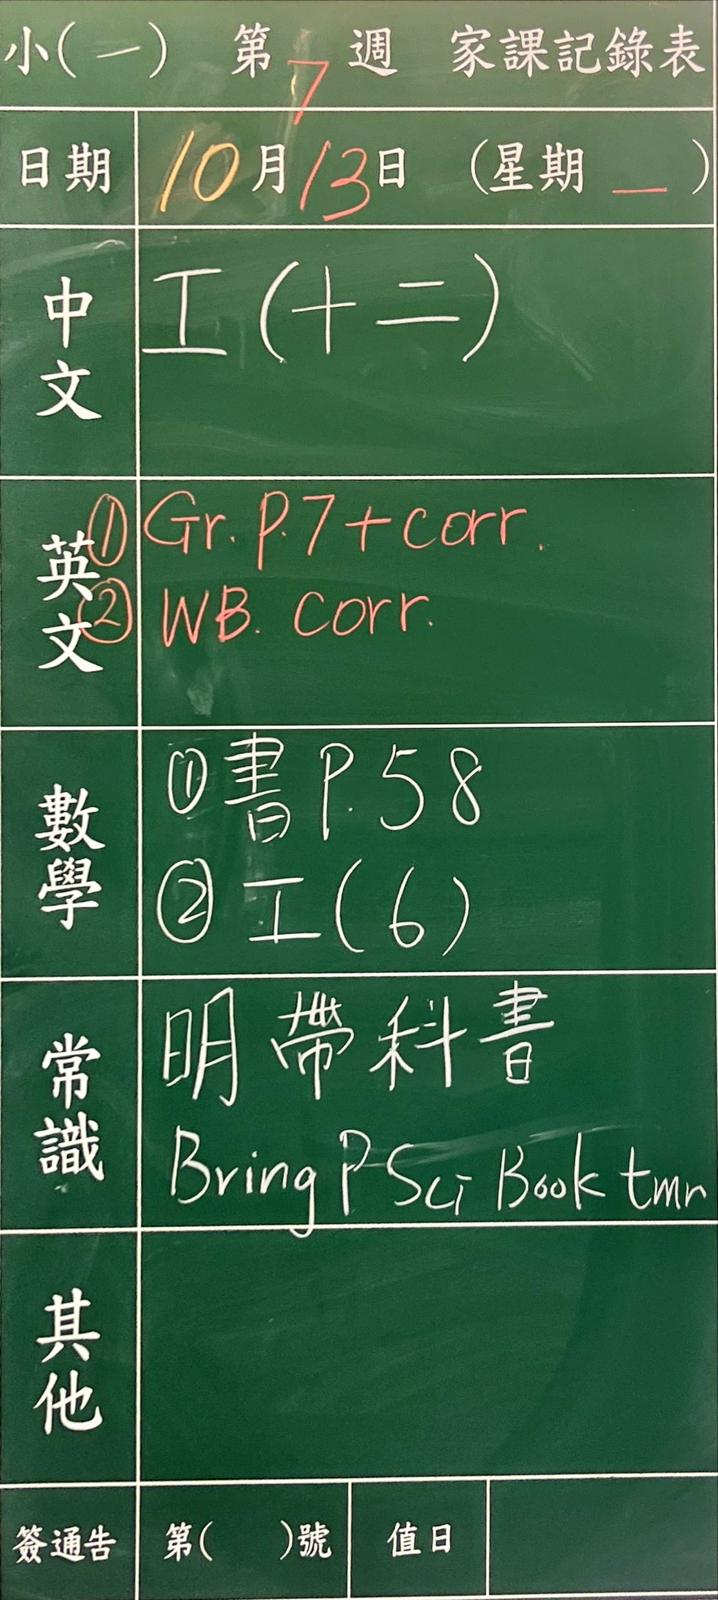 小(一) 第7週 家課記錄表
日期 10月13日 (星期一)
中文 工(十二)
英文 ① Gr. P.7 + corr.
② WB. corr.
數學 ① 書 P.58
② 工(6)
常識 明帶科書
Bring P Sci Book tmr
其他
簽通告 第( )號 值日